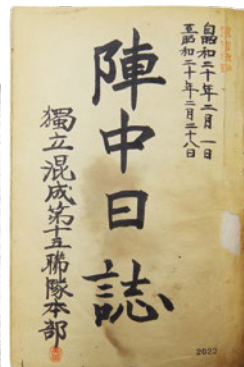 自昭和二十年二月一日
至昭和二十年二月二十八日
陣中日誌
獨立混成第十五聯隊本部
2022